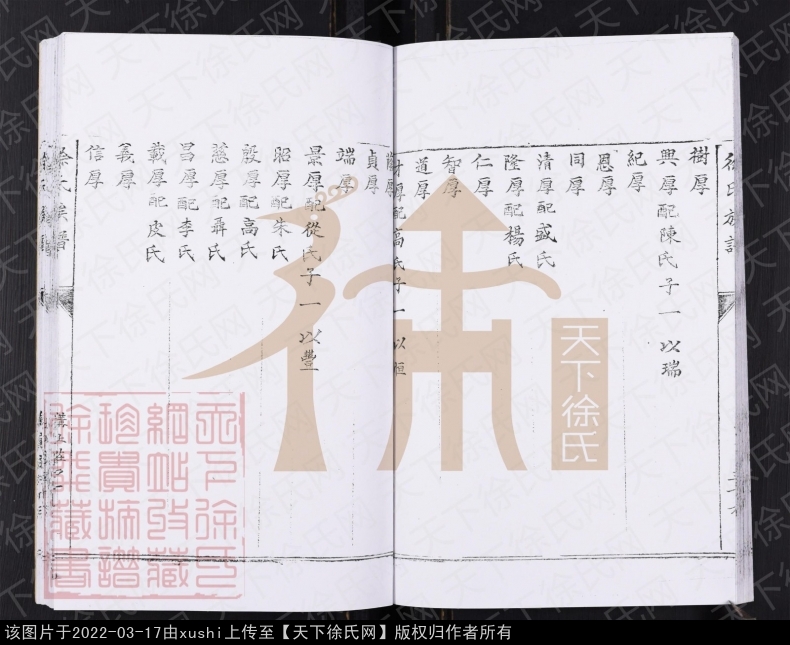 徐氏族譜
樹厚
興厚配陳氏子一 以瑞
紀厚
恩厚
同厚
清厚配盛氏
隆厚配楊氏
仁厚
智厚
道厚
厚配高氏子一 以恒
貞厚
端厚
景厚配從氏子一 以豐
昭厚配朱氏
殷厚配高氏
慈厚配聶氏
昌厚配李氏
載厚配皮氏
義厚
信厚
徐氏族譜
天下徐氏
天下徐氏網站收藏珍貴族譜徐氏藏書
天下徐氏网
该图片于2022-03-17由xushi上传至【天下徐氏网】版权归作者所有